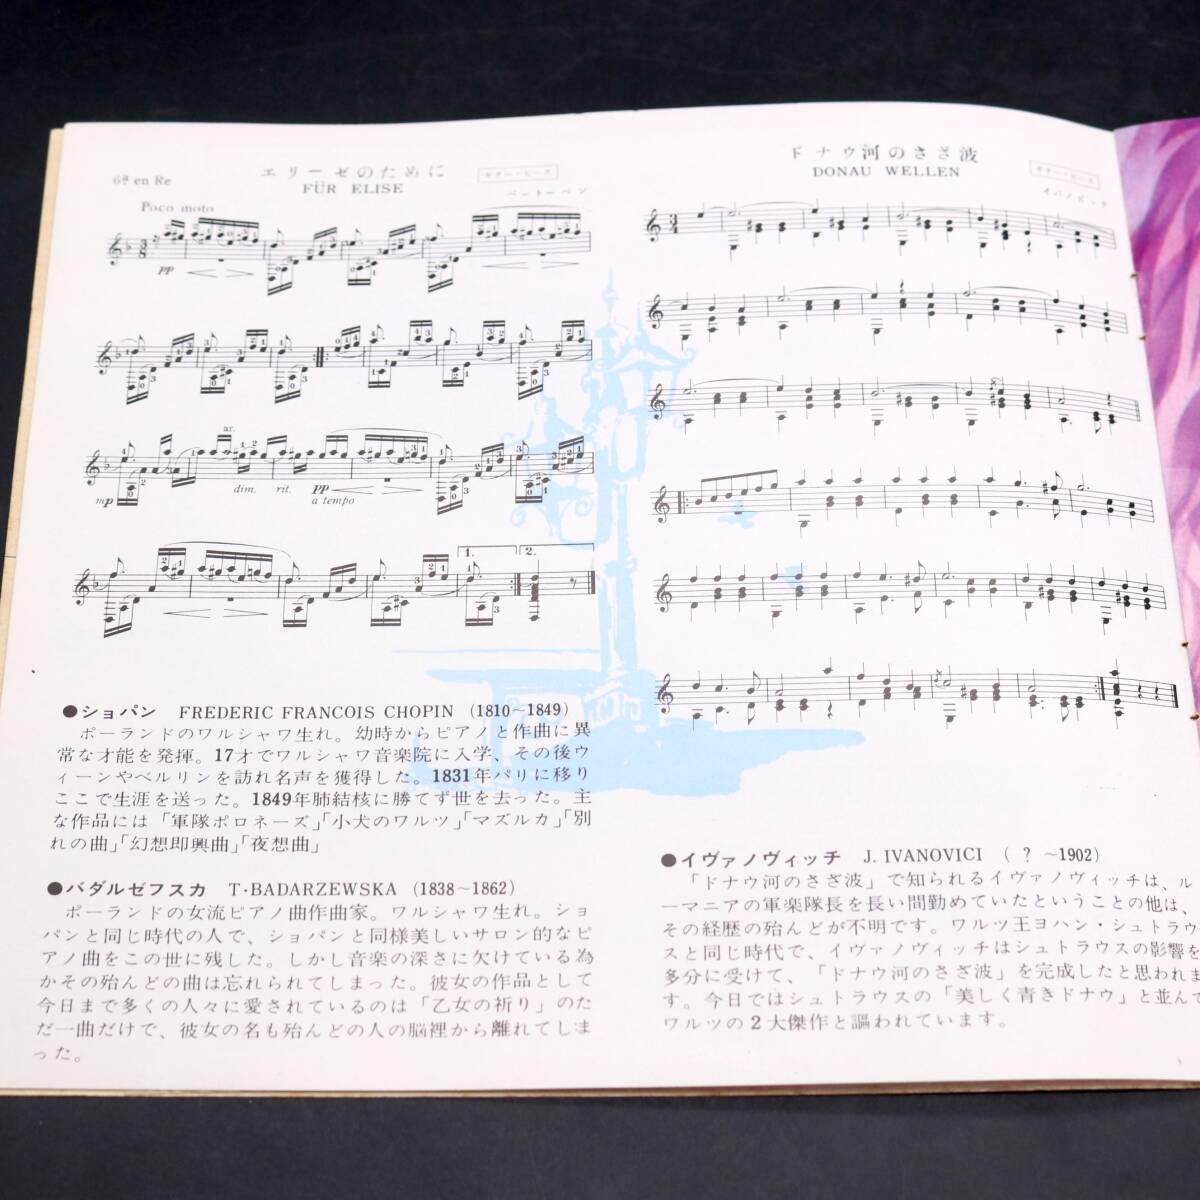 エリーゼのために
FÜR ELISE
ギター・ピース
6ª en Re
ベートーベン
Poco moto
pp
ar.
mp
dim. rit. pp
a tempo
1. 2.
●ショパン FREDERIC FRANCOIS CHOPIN (1810~1849)
ポーランドのワルシャワ生れ。幼時からピアノと作曲に異
常な才能を発揮。17才でワルシャワ音楽院に入学、その後ウ
ィーンやベルリンを訪れ名声を獲得した。1831年パリに移り
ここで生涯を送った。1849年肺結核に勝てず世を去った。主
な作品には「軍隊ポロネーズ」「小犬のワルツ」「マズルカ」「別
れの曲」「幻想即興曲」「夜想曲」
●バダルゼフスカ T・BADARZEWSKA (1838~1862)
ポーランドの女流ピアノ曲作曲家。ワルシャワ生れ。ショ
パンと同じ時代の人で、ショパンと同様美しいサロン的なピ
アノ曲をこの世に残した。しかし音楽の深さに欠けている為
かその殆んどの曲は忘れられてしまった。彼女の作品として
今日まで多くの人々に愛されているのは「乙女の祈り」のた
だ一曲だけで、彼女の名も殆んどの人の脳裡から離れてしま
った。
ドナウ河のさざ波
DONAU WELLEN
ギター・ピース
イバノビッチ
●イヴァノヴィッチ J. IVANOVICI ( ? ~1902)
「ドナウ河のさざ波」で知られるイヴァノヴィッチは、ル
ーマニアの軍楽隊長を長い間勤めていたということの他は、
その経歴の殆んどが不明です。ワルツ王ヨハン・シュトラウ
スと同じ時代で、イヴァノヴィッチはシュトラウスの影響を
多分に受けて、「ドナウ河のさざ波」を完成したと思われま
す。今日ではシュトラウスの「美しく青きドナウ」と並んで
ワルツの2大傑作と謳われています。